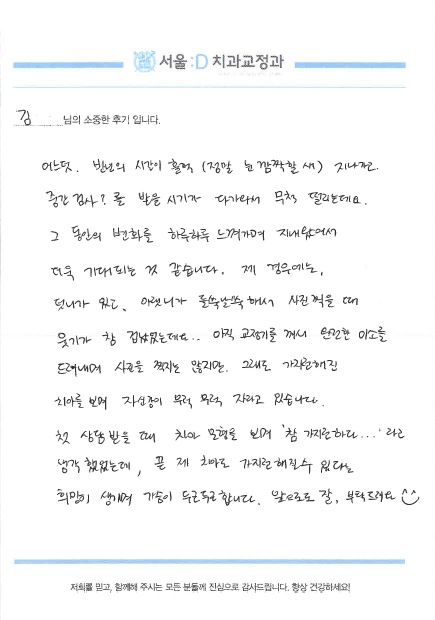 서울:D 치과교정과
김 님의 소중한 후기 입니다.
어느덧, 반년의 시간이 훌쩍 (정말 눈 깜짝할 새) 지나가고
중간 검사? 를 받을 시기가 다가와서 무척 떨리는데요.
그 동안의 변화를 하루하루 느껴가며 지내왔어서
더욱 기대되는 것 같습니다. 제 경우에는,
덧니가 있고, 아랫니가 들쑥날쑥해서 사진 찍을 때
웃기가 참 겁났었는데요.. 아직 교정기를 껴서 완전한 미소를
드러내며 사진을 찍지는 않지만. 그래도 가지런해진
치아를 보며 자신감이 무럭 무럭 자라고 있습니다.
첫 상담 받을 때 치아 모형을 보며 '참 가지런하다...' 라고
생각 했었는데, 곧 제 치아도 가지런해질 수 있다는
희망이 생기며 가슴이 두근두근합니다. 앞으로도 잘, 부탁드려요
저희를 믿고, 함께해 주시는 모든 분들께 진심으로 감사드립니다. 항상 건강하세요!